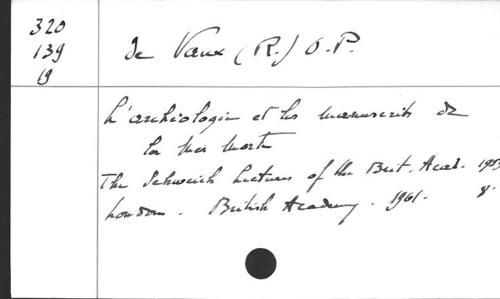 320
139
19
de Vaux (R.) O.P.
L'archéologie et les manuscrits de
la Mer Morte
The Schweich Lectures of the Brit. Acad. 1959
London. British Academy. 1961. 8°